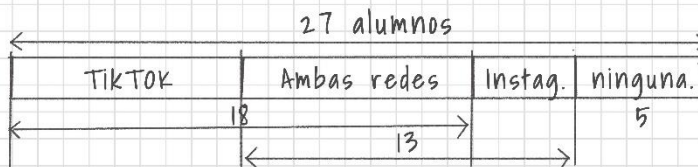 27 alumnos
TikTOK Ambas redes Instag. ninguna.
18 5
13